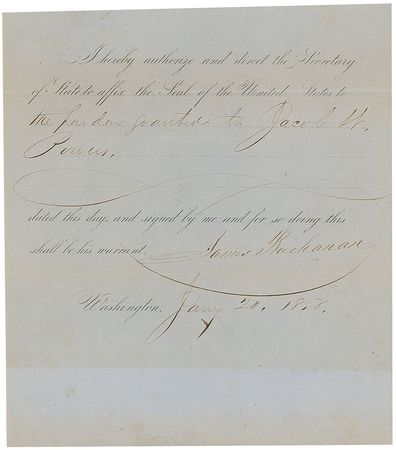 I hereby authorize and direct the Secretary
of State to affix the Seal of the United States to
the pardon granted to Jacob W.
Powers.
dated this day, and signed by me and for so doing this
shall be his warrant.
James Buchanan
Washington, Jany 20, 1858.